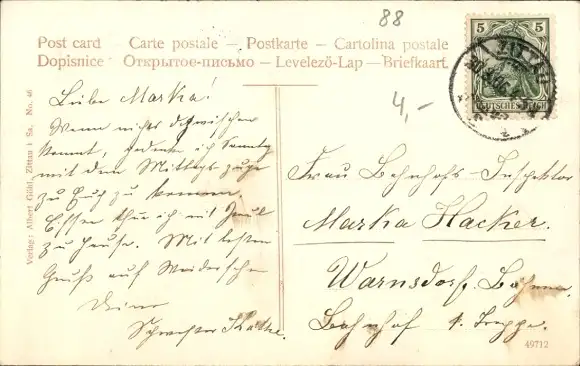 88
Post card – Carte postale – Postkarte – Cartolina postale
Dopisnice – Открытое-письмо – Levelező-Lap – Briefkaart
5 5
DEUTSCHES REICH
ZITTAU
4,-
Liebe Marka!
Wenn nichts dazwischen
kommt, gedenke ich Sonntag
mit dem Mittags zuge
zu Euch zu kommen.
Essen thue ich mit
zu Hause. Mit besten
Gruß auf Wiedersehn
Deine
Schwester
Frau Bahnhofs-Inspektor
Marka Hacker.
Warnsdorf. Böhmen
Bahnhof 1. Treppe.
Verlag: Albert Gildl, Zittau i. Sa. No. 46
49712